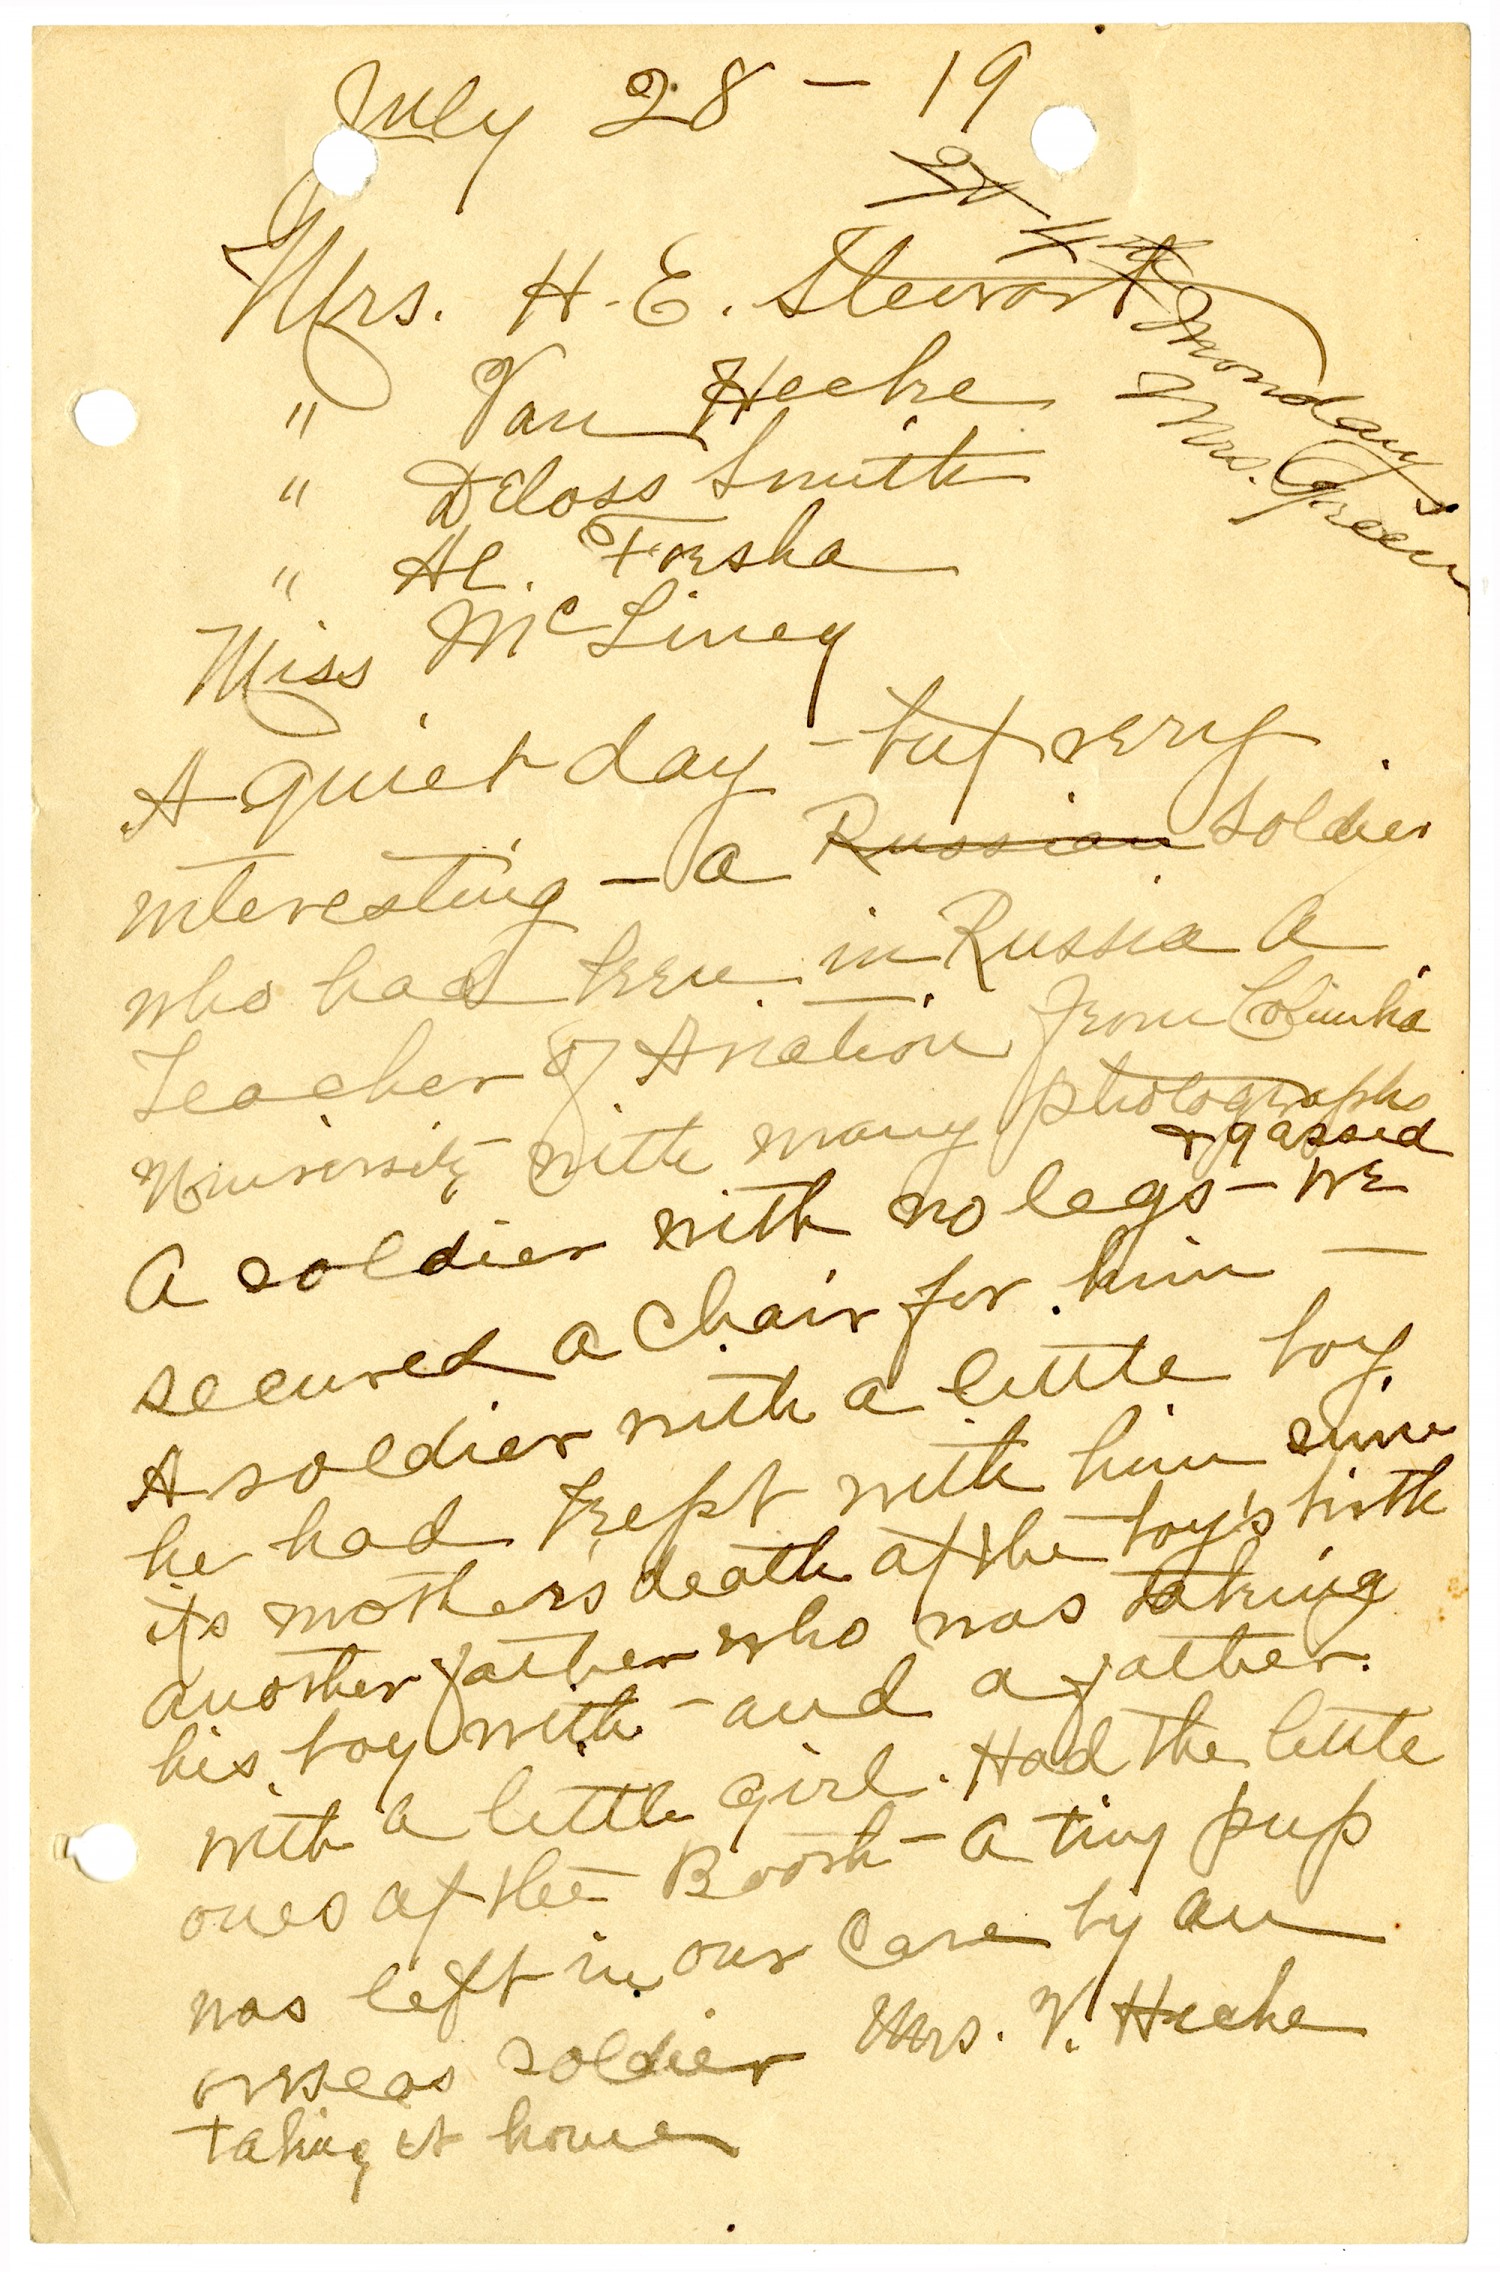 July 28 - 19
4th Monday
Mrs. Green
Mrs. H. E. Stewart
" Van Hecke
" Deloss Smith
" Al. Forsha
Miss McLiney
A quiet day - but very
interesting - a Russian soldier
who had been in Russia a
Teacher of Aviation from Columbia
University with many photographs
& gassed
A soldier with no legs - we
secured a chair for him -
A soldier with a little boy
he had kept with him since
its mothers death at the boy's birth
another father who was taking
his boy with - and a father
with a little girl. Had the little
ones at the Booth - a tiny pup
was left in our care by an
overseas soldier Mrs. V. Hecke
taking it home